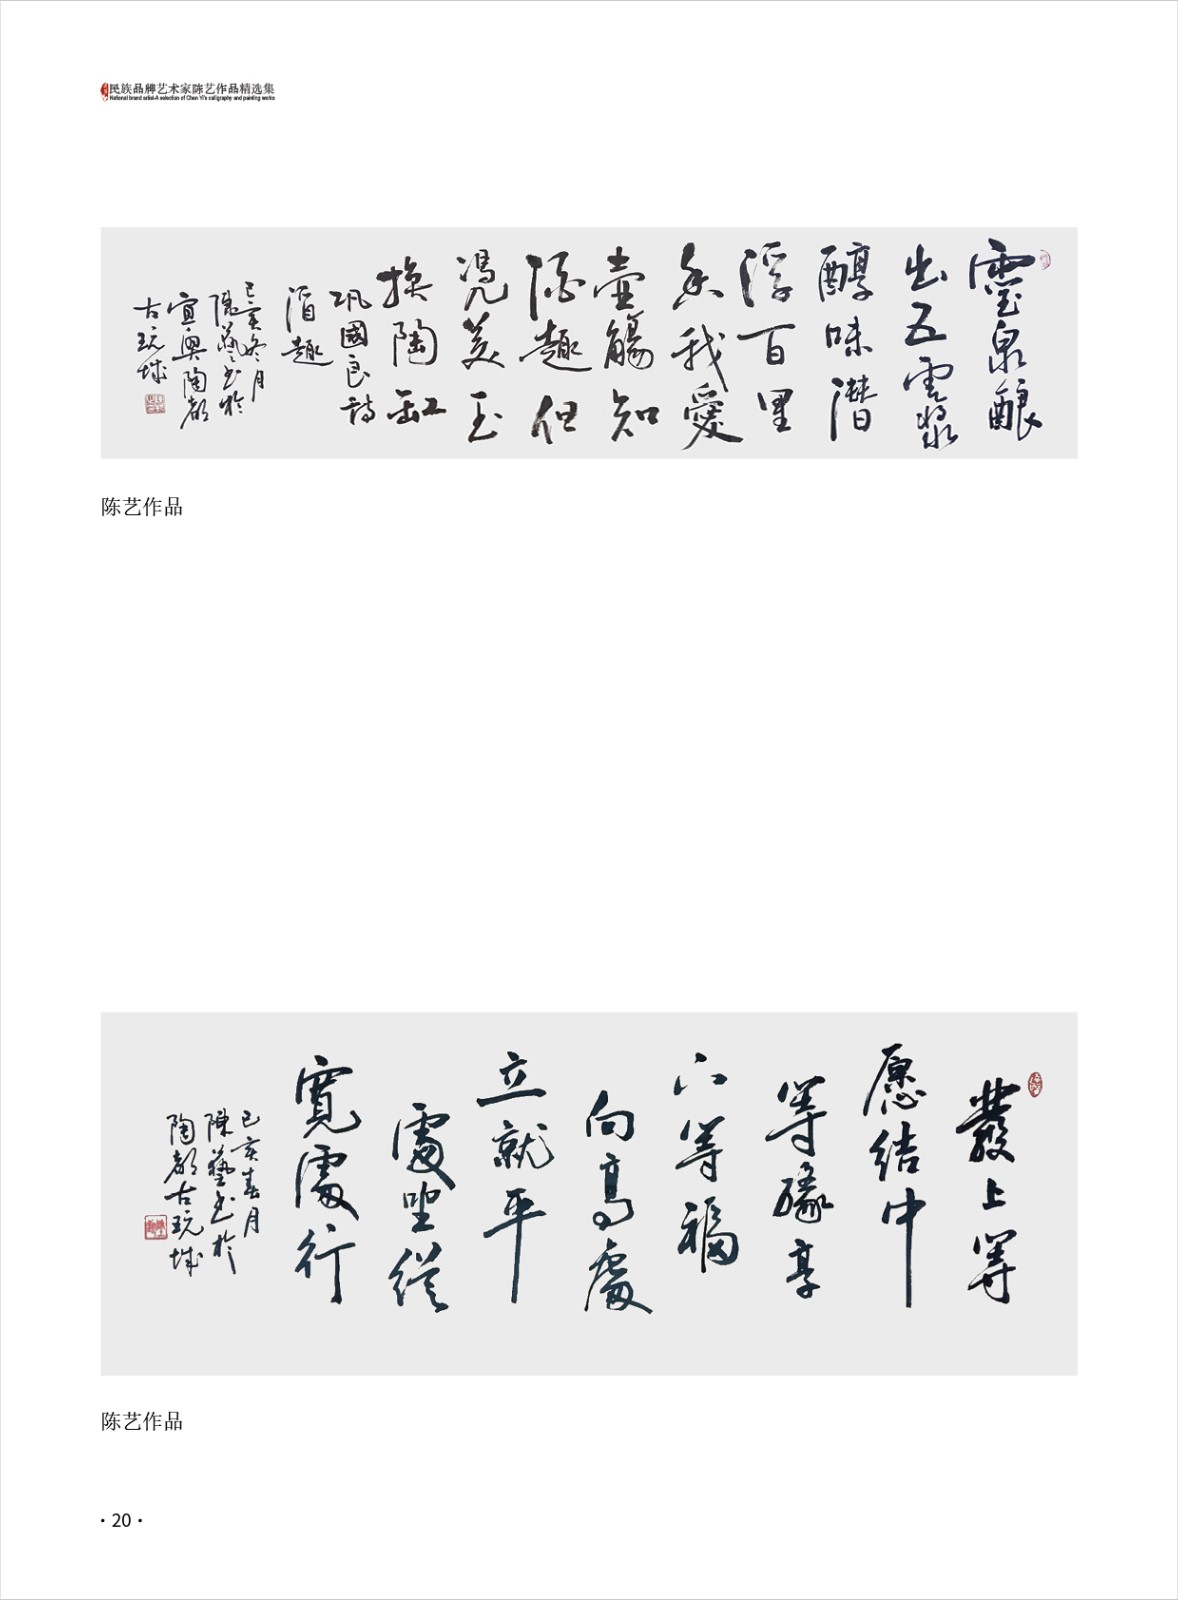 民族品牌艺术家陈艺作品精选集
National brand artist-A selection of Chen Yi's calligraphy and painting works
靈泉酿
出五雲漿
醇味潛
浮百里
香我愛
壶觴知
陶趣但
憑美玉
換陶缸
巩國良詩
酒趣
己亥冬月
陳藝书於
宜興陶都
古玩城
陈艺作品
發上等
愿结中
等緣享
下等福
向高處
立就平
處坐從
寬處行
己亥春月
陳藝书於
陶都古玩城
陈艺作品
· 20 ·